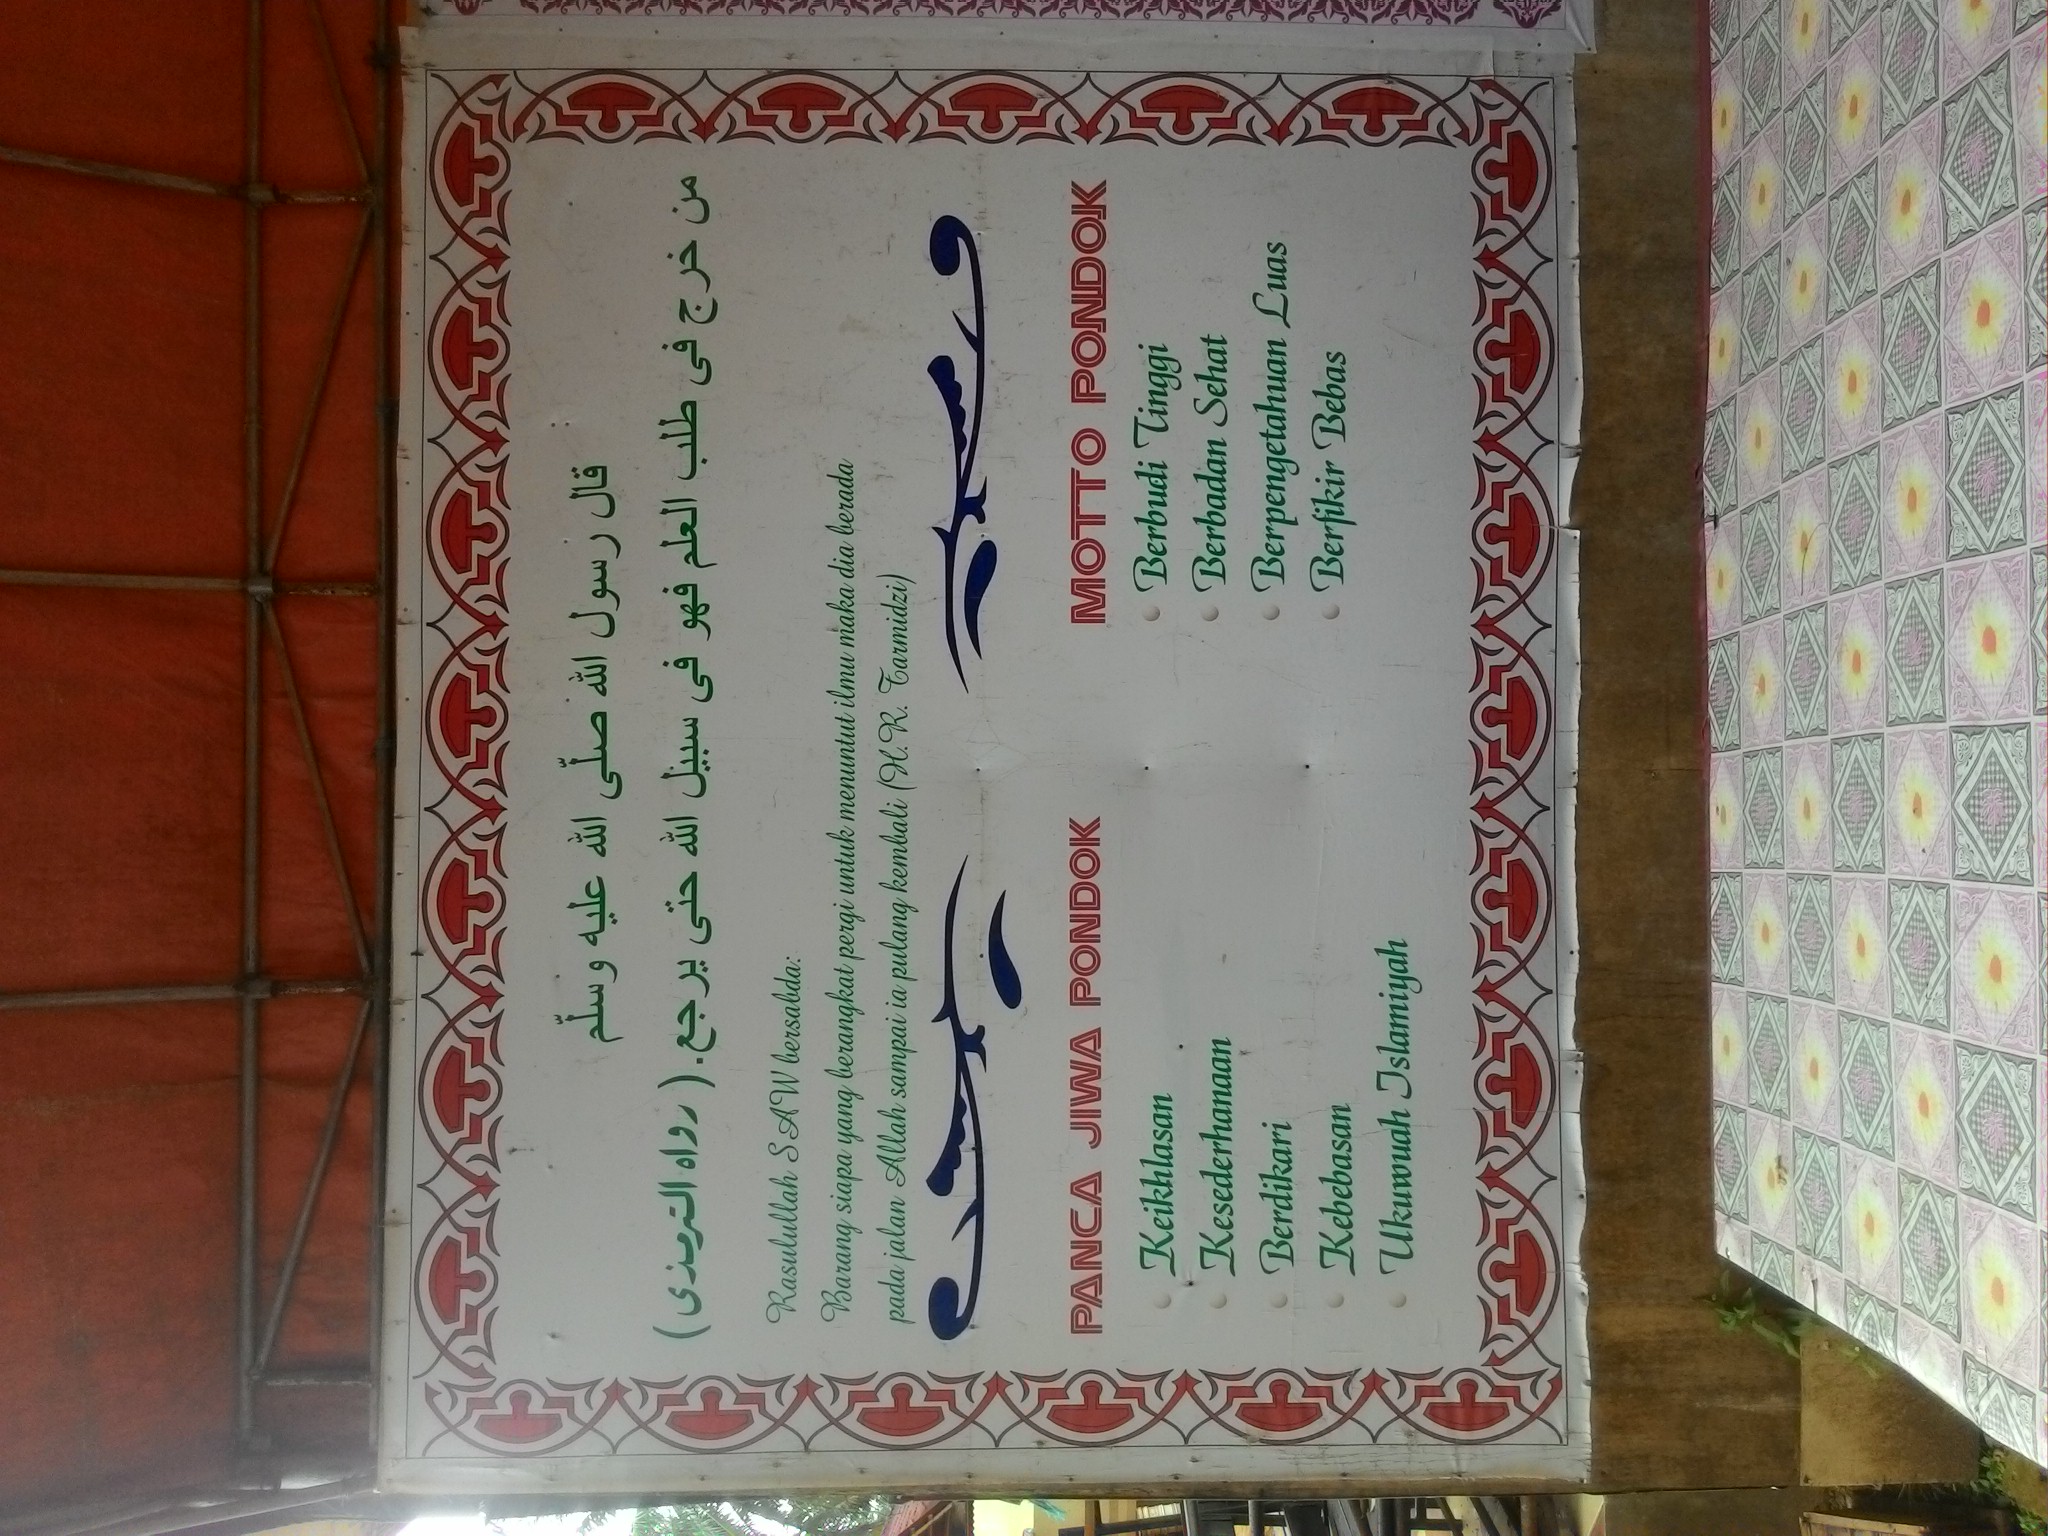 قال رسول الله صلّى الله عليه وسلّم
من خرج فى طلب العلم فهو فى سبيل الله حتى يرجع. ( رواه الترمذى )
Rasulullah SAW bersabda:
Barang siapa yang berangkat pergi untuk menuntut ilmu maka dia berada
pada jalan Allah sampai ia pulang kembali (H.R. Tarmidzi)
PANCA JIWA PONDOK
Keikhlasan
Kesederhanaan
Berdikari
Kebebasan
Ukuwuah Islamiyah
MOTTO PONDOK
Berbudi Tinggi
Berbadan Sehat
Berpengetahuan Luas
Berfikir Bebas